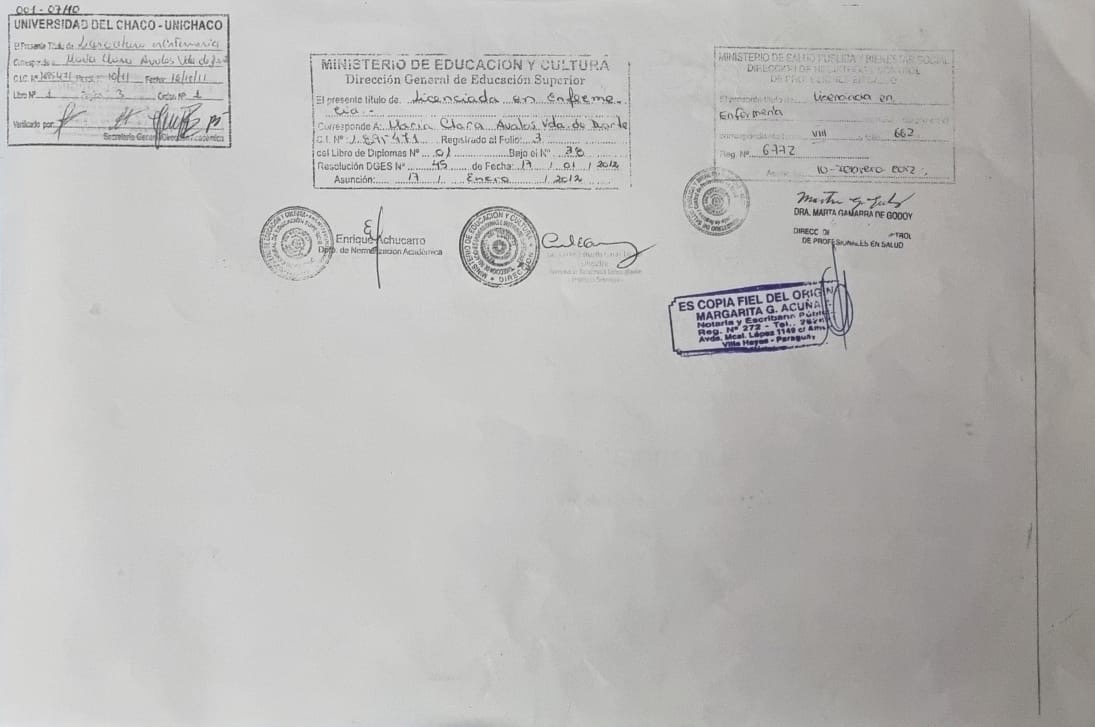 001-07/10
UNIVERSIDAD DEL CHACO - UNICHACO
El Presente Título de Licenciatura en Enfermería
Corresponde a Maria Clara Avalos Vda de
C.I.C. Nº 1895471 10/11 Fecha
Libro Nº 1 Página 3 Orden Nº 1
Verificado por:
Secretaría General Dirección Académica
MINISTERIO DE EDUCACION Y CULTURA
Dirección General de Educación Superior
El presente título de. Licenciada en Enferme
ria.-
Corresponde A: Maria Clara Avalos Vda. de Duarte
C.I. Nº: 1.895.471 Registrado al Folio: 3
del Libro de Diplomas Nº 01 Bajo el Nº 38
Resolución DGES Nº 45 de Fecha: 17 / 01 / 2012
Asunción: 17 / Enero / 2012
Enrique Achucarro
Dpto. de Normalización Académica
MINISTERIO DE EDUCACION Y CULTURA
DIRECCION
MINISTERIO DE SALUD PUBLICA Y BIENESTAR SOCIAL
El presente título de Licenciada en
Enfermería
VIII folio 662
Reg. Nº 6772
10-Febrero 2012
DRA. MARTA GAMARRA DE GODOY
DE PROFESIONALES EN SALUD
ES COPIA FIEL DEL ORIGINA
MARGARITA G. ACUÑA
Notaria y Escribana Públi
Reg. Nº 272 - Tel.:
Avda. Mcal. López 1149 c/
Villa Hayes - Paraguay